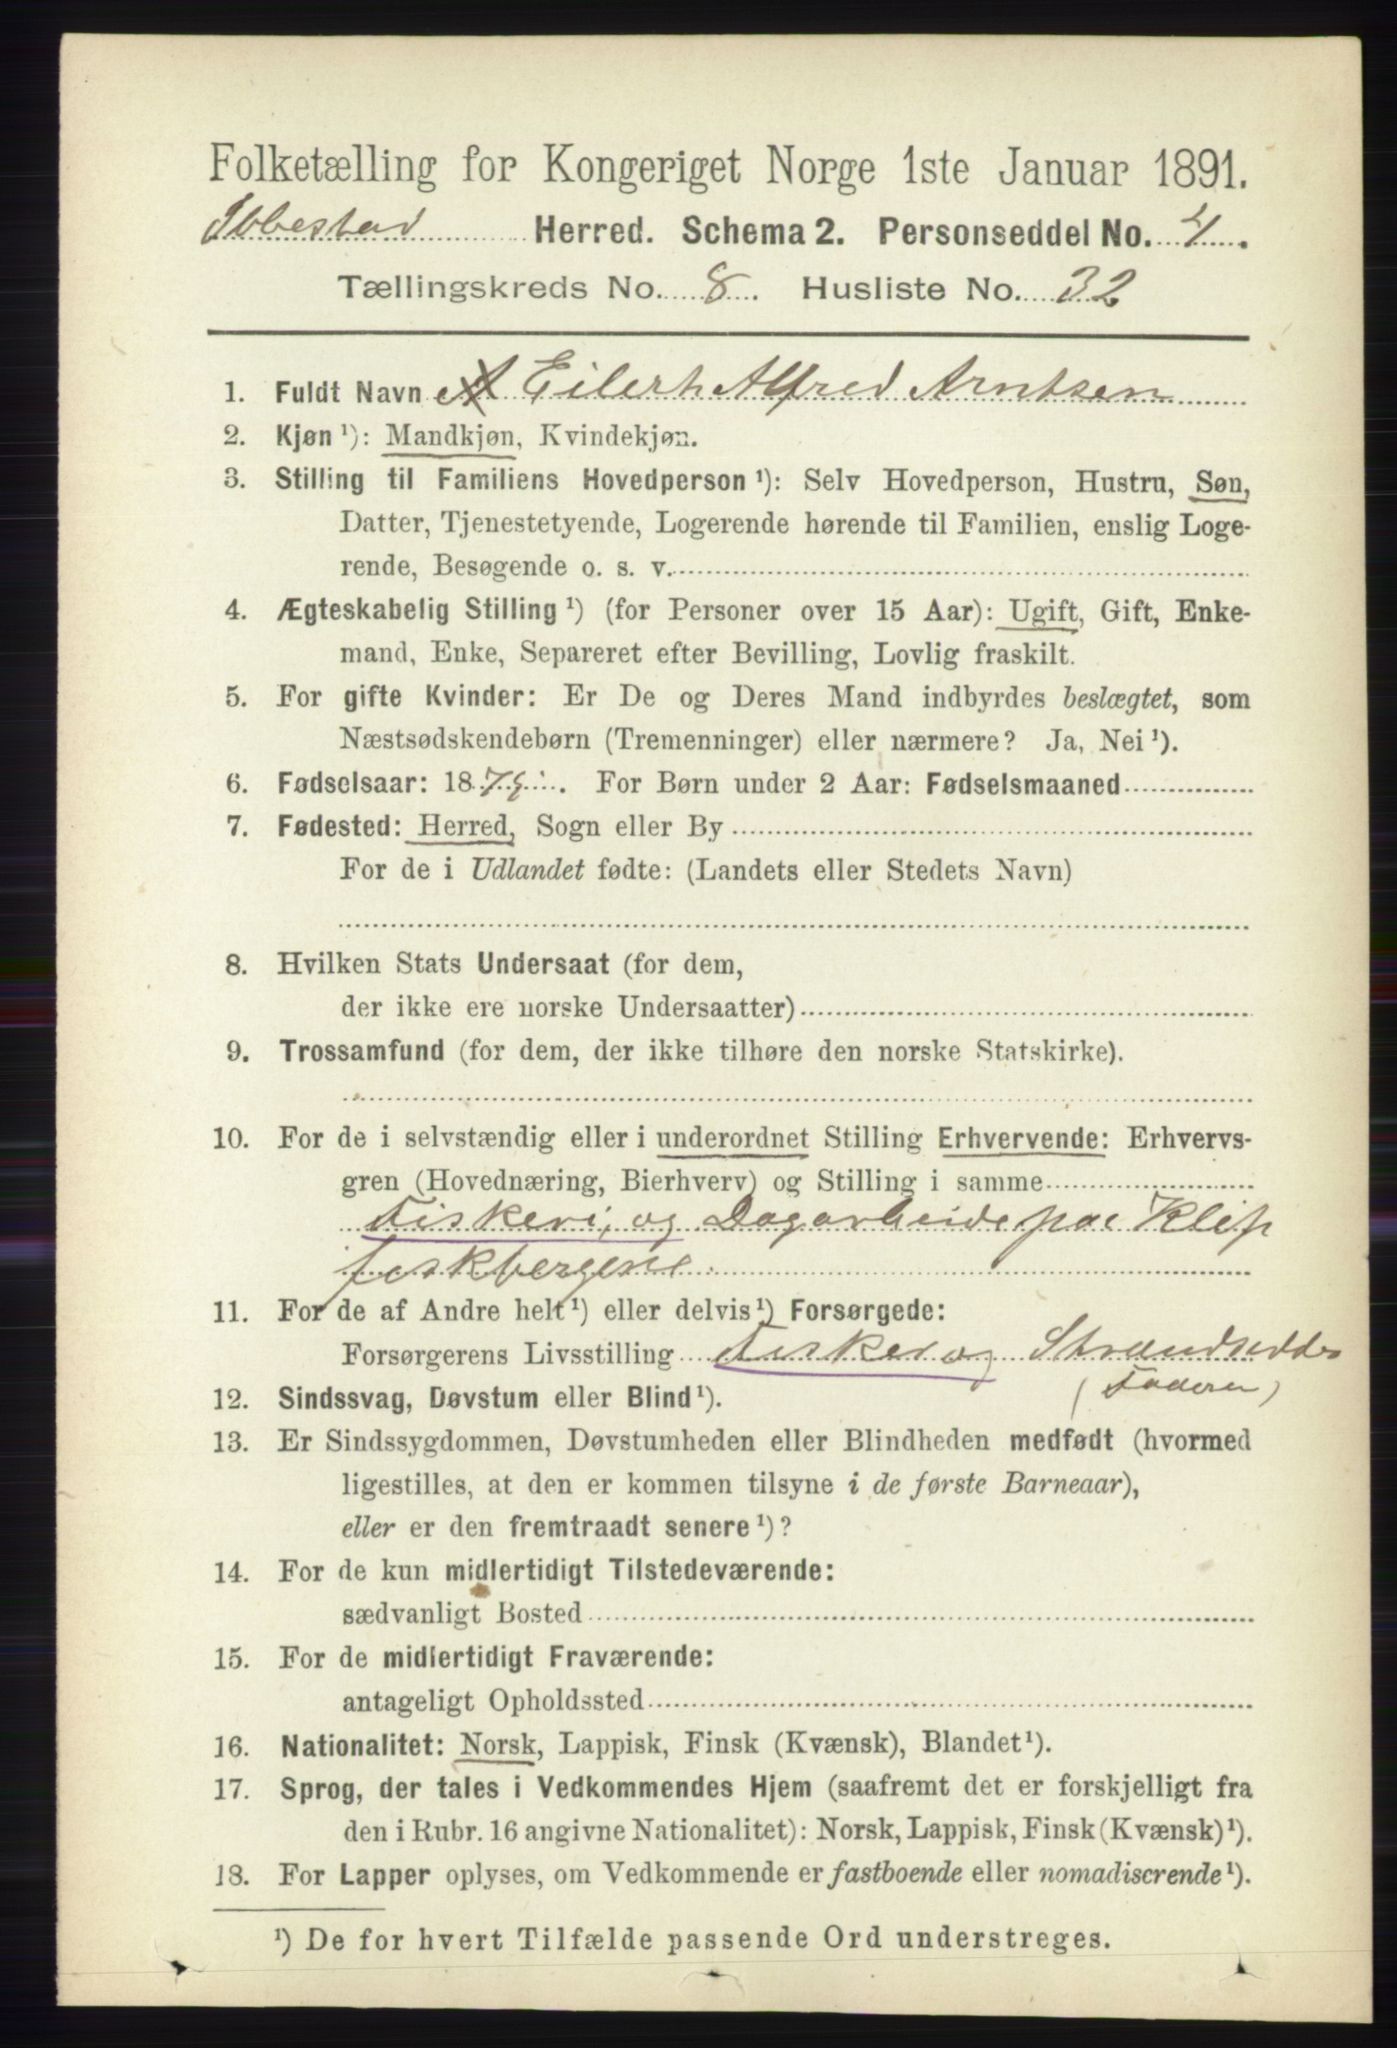 Folketælling for Kongeriget Norge 1ste Januar 1891.
Ibbestad Herred. Schema 2. Personseddel No. 4.
Tællingskreds No. 8. Husliste No. 32
1. Fuldt Navn Eilert Alfred Arntsen
2. Kjøn ¹): Mandkjøn, Kvindekjøn.
3. Stilling til Familiens Hovedperson ¹): Selv Hovedperson, Hustru, Søn,
Datter, Tjenestetyende, Logerende hørende til Familien, enslig Loge-
rende, Besøgende o. s. v.
4. Ægteskabelig Stilling ¹) (for Personer over 15 Aar): Ugift, Gift, Enke-
mand, Enke, Separeret efter Bevilling, Lovlig fraskilt.
5. For gifte Kvinder: Er De og Deres Mand indbyrdes beslægtet, som
Næstsødskendebørn (Tremenninger) eller nærmere? Ja, Nei ¹).
6. Fødselsaar: 18 . For Børn under 2 Aar: Fødselsmaaned
7. Fødested: Herred, Sogn eller By
For de i Udlandet fødte: (Landets eller Stedets Navn)
8. Hvilken Stats Undersaat (for dem,
der ikke ere norske Undersaatter)
9. Trossamfund (for dem, der ikke tilhøre den norske Statskirke).
10. For de i selvstændig eller i underordnet Stilling Erhvervende: Erhvervs-
gren (Hovednæring, Bierhverv) og Stilling i samme
Fiskeri, og Dagarbeide paa Klip
fiskbergene.
11. For de af Andre helt ¹) eller delvis ¹) Forsørgede:
Forsørgerens Livsstilling Fisker og Strandsidder
(Faderen)
12. Sindssvag, Døvstum eller Blind ¹).
13. Er Sindssygdommen, Døvstumheden eller Blindheden medfødt (hvormed
ligestilles, at den er kommen tilsyne i de første Barneaar),
eller er den fremtraadt senere ¹)?
14. For de kun midlertidigt Tilstedeværende:
sædvanligt Bosted
15. For de midlertidigt Fraværende:
antageligt Opholdssted
16. Nationalitet: Norsk, Lappisk, Finsk (Kvænsk), Blandet ¹).
17. Sprog, der tales i Vedkommendes Hjem (saafremt det er forskjelligt fra
den i Rubr. 16 angivne Nationalitet): Norsk, Lappisk, Finsk (Kvænsk) ¹).
18. For Lapper oplyses, om Vedkommende er fastboende eller nomadiserende ¹).
¹) De for hvert Tilfælde passende Ord understreges.